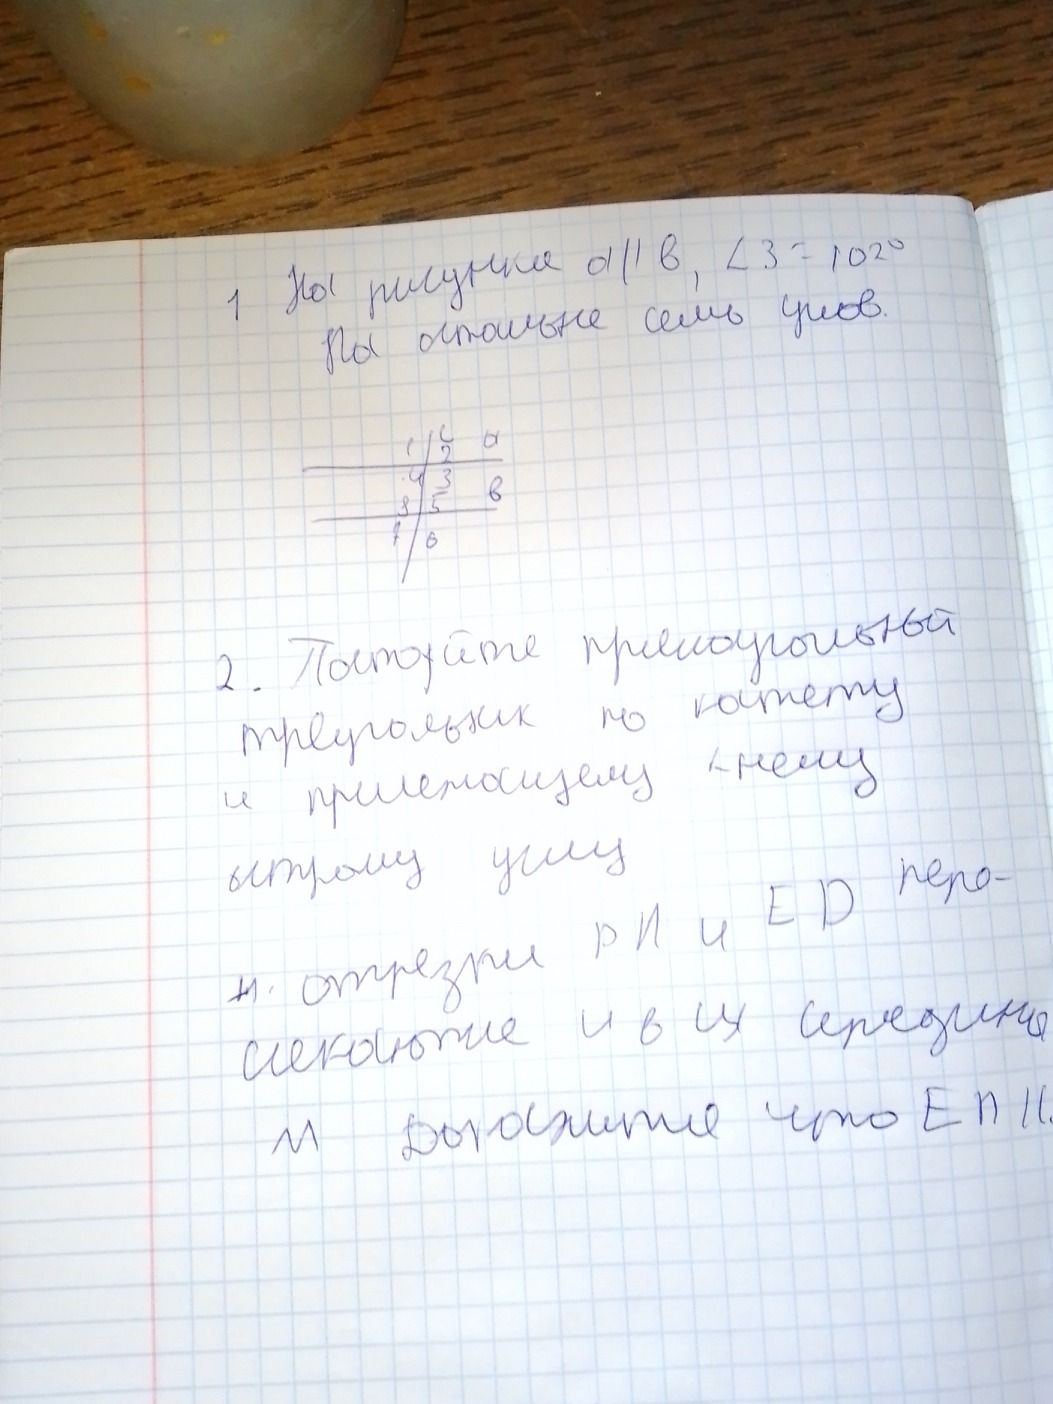 1 На рисунке a || в, ∠3 = 102°
На остальне семь углов.
1 2 a
4 3 в
8 5
7 6
2. Постойте прямоугольный
треугольник по катету
и прилежащему к нему
острому углу
4. отрезки РN и ED пере-
секаютие и в их середине
М Докажите что EN ||